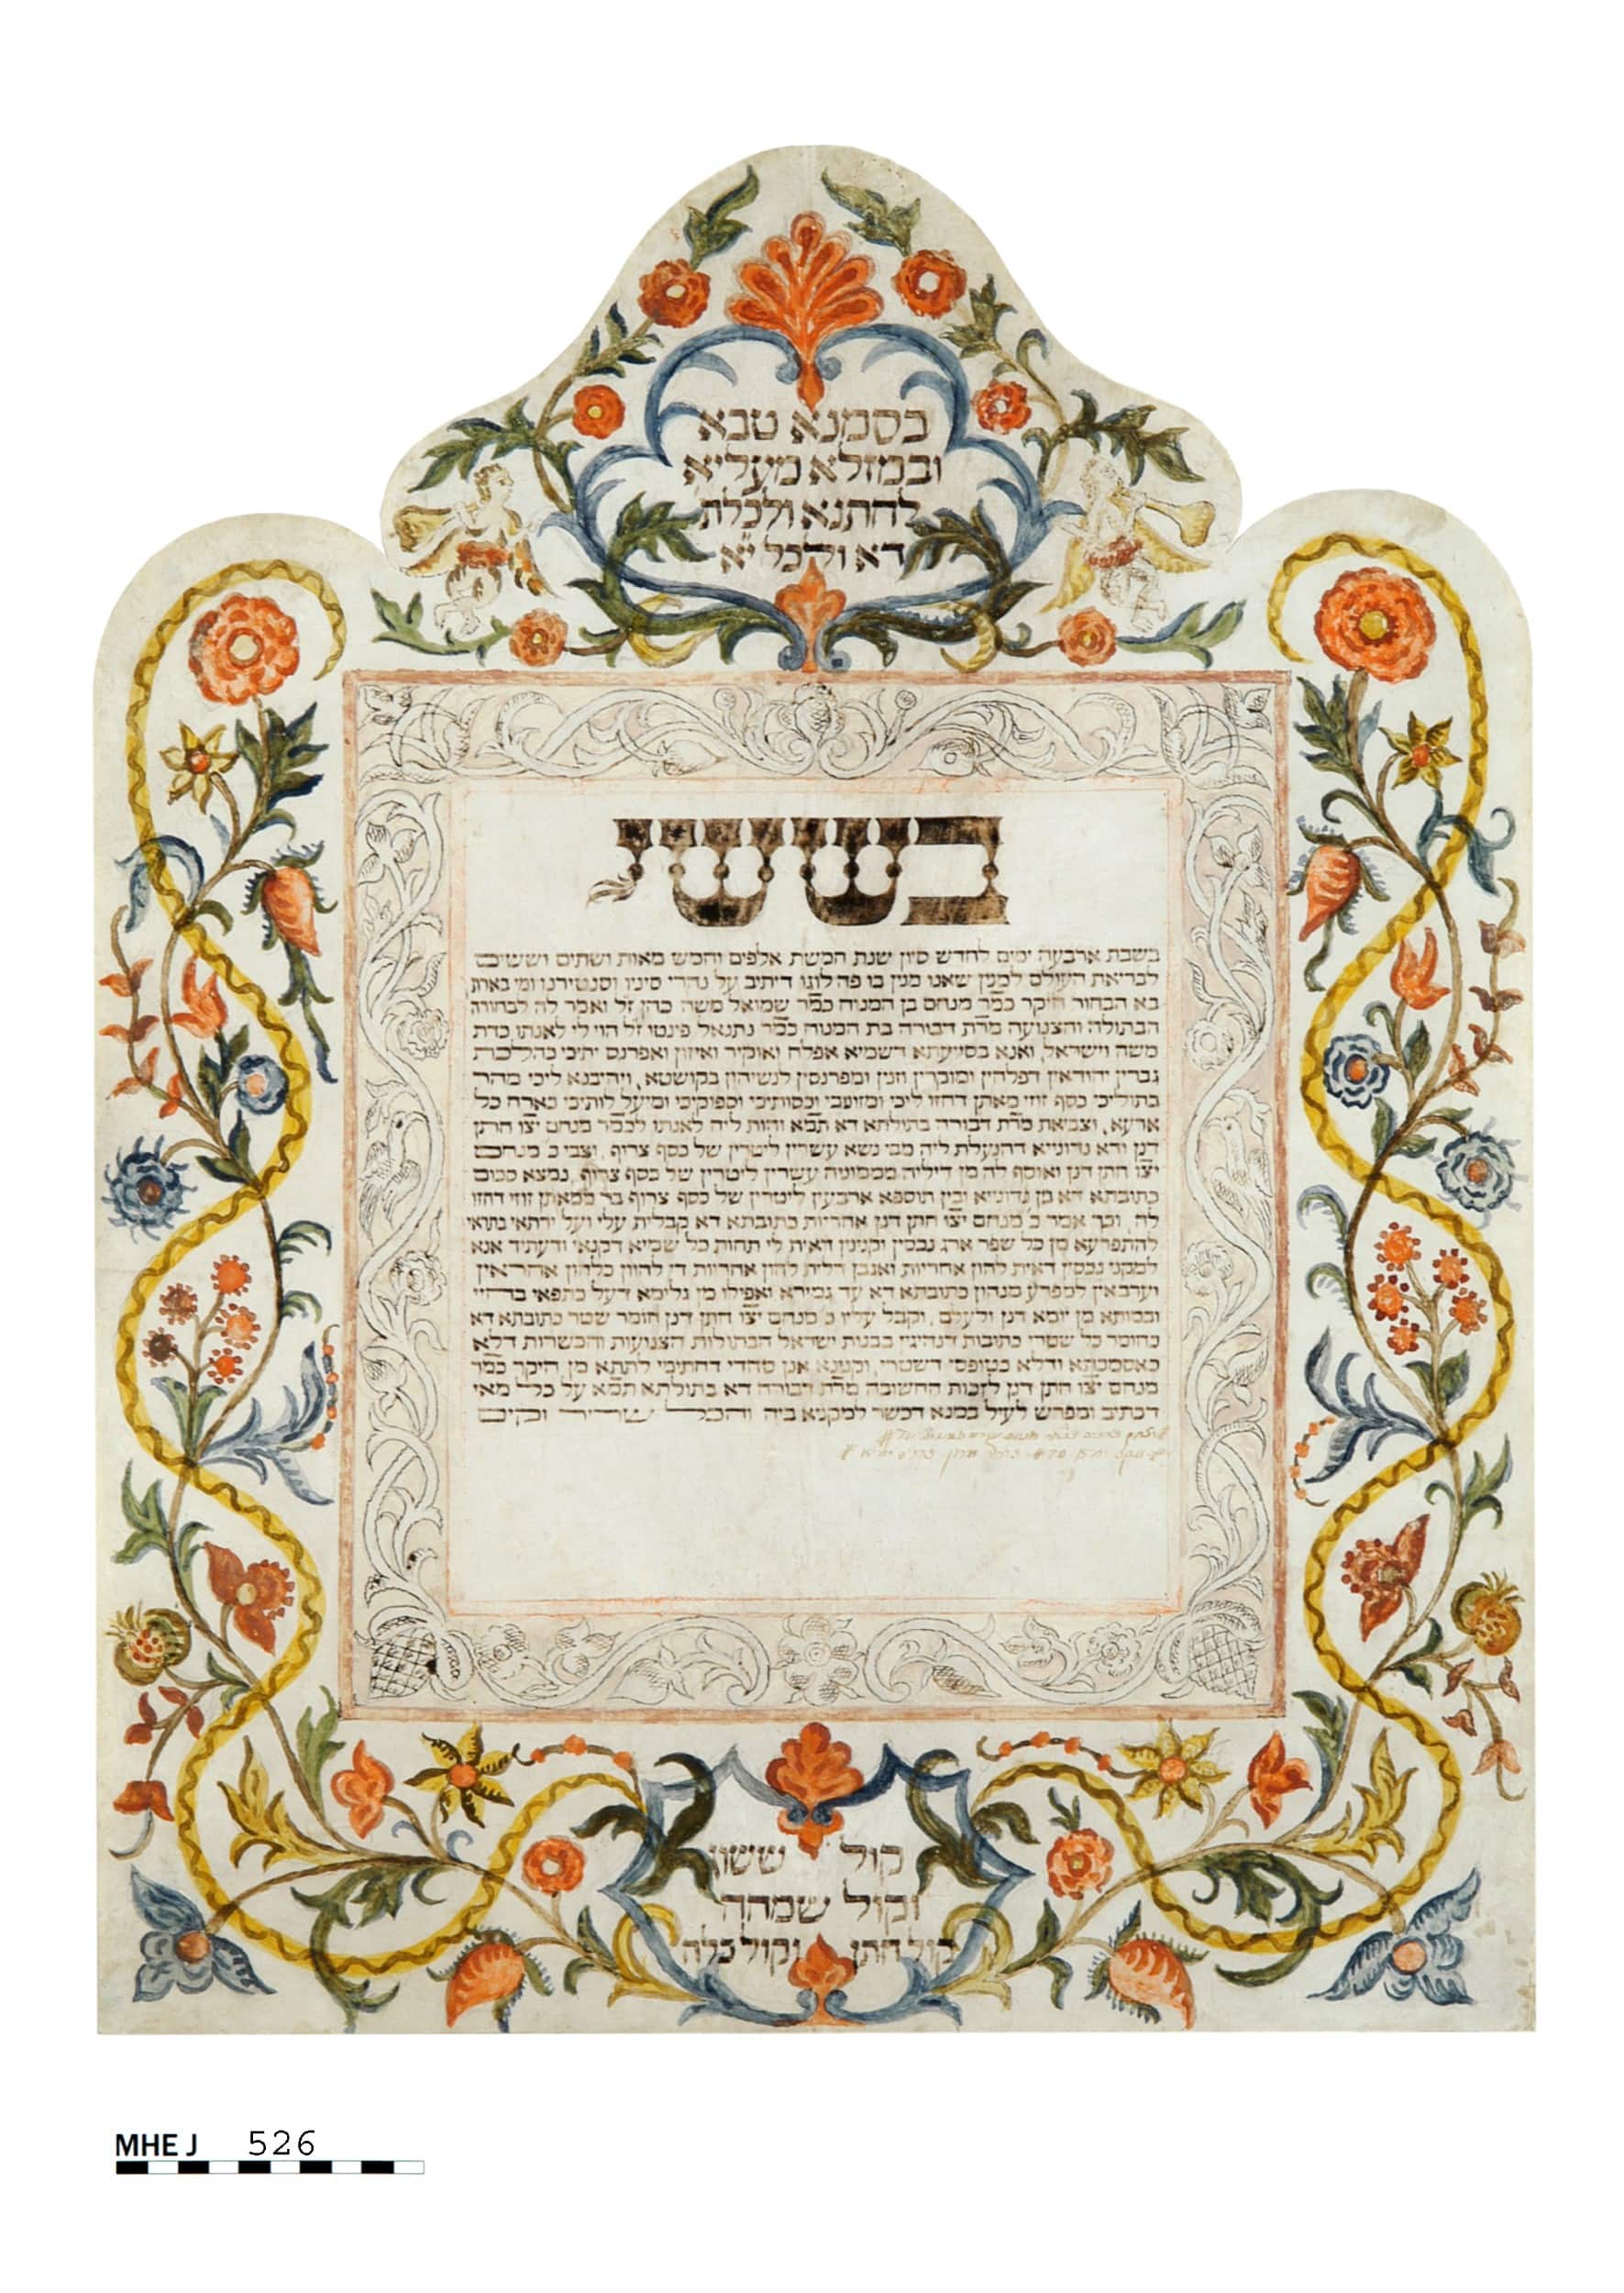 בסמנא טבא
ובמזלא מעליא
לחתנא ולכלת
דא והכל יא
בששי
בשבת ארבעה ימים לחדש סיון שנת חמשת אלפים וחמש מאות ושתים וששים
לבריאת העולם למנין שאנו מנין בו פה לוגו דיתיב על נהרי סיניו וסנטירנו ומי בארות
בא הבחור היקר כמר מנחם בן המנוח כמר שמואל משה כהן זל ואמר לה לבחורה
הבתולה והצנועה מרת דבורה בת המנוח כמר נתנאל פינטו זל הוי לי לאנתו כדת
משה וישראל, ואנא בסייעתא דשמיא אפלח ואוקיר ואיזון ואפרנס יתיכי כהלכת
גברין יהודאין דפלחין ומוקרין וזנין ומפרנסין לנשיהון בקושטא, ויהיבנא ליכי מהר
בתוליכי כסף זוזי מאתן דחזו ליכי ומזוניכי וכסותיכי וספוקיכי ומיעל לותיכי כארח כל
ארעא, וצביאת מרת דבורה בתולתא דא תמא והות ליה לאנתו לכמר מנחם יצו חתן
דנן ודא נדונייא דהנעלת ליה מבי נשא עשרין ליטרין של כסף צרוף, וצבי כ מנחם
יצו חתן דנן ואוסף לה מן דיליה מממוניה עשרין ליטרין של כסף צרוף, נמצא סכום
כתובתא דא בין נדונייא ובין תוספא ארבעין ליטרין של כסף צרוף בר ממאתן זוזי דחזו
לה, וכך אמר כ מנחם יצו חתן דנן אחריות כתובתא דא קבלית עלי ועל ירתאי בתראי
להתפרעא מן כל שפר ארג נכסין וקנינין דאית לי תחות כל שמיא דקנאי ודעתיד אנא
למקני נכסין דאית להון אחריות ואגבן דלית להון אחריות דן להוון כלהון אחראין
וערבאין למפרע מנהון כתובתא דא עד גמירא ואפילו מן גלימא דעל כתפאי בחיי
ובמותא מן יומא דנן ולעלם, וקבל עליו כ מנחם יצו חתן דנן חומר שטר כתובתא דא
כחומר כל שטרי כתובות דנהיגין בבנות ישראל הבתולות הצנועות והכשרות דלא
כאסמכתא ודלא כטופסי דשטרי, וקנינא אנן סהדי דחתימי לתתא מן היקר כמר
מנחם יצו חתן דנן לזכות החשובה מרת דבורה דא בתולתא תמא על כל מאי
דכתיב ומפרש לעיל במנא דכשר למקניא ביה והכל שריר וקים
קול ששון
וקול שמחה
קול חתן וקול כלה
MHE J 526